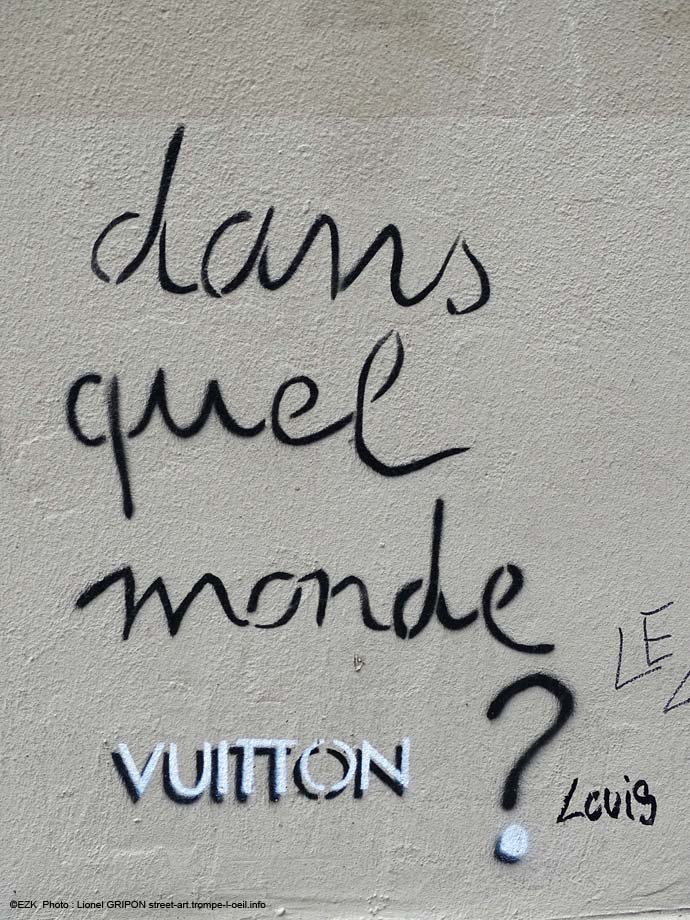 dans
quel
monde
?
VUITTON
Louis
LE
©EZK Photo : Lionel GRIPON street-art.trompe-l-oeil.info